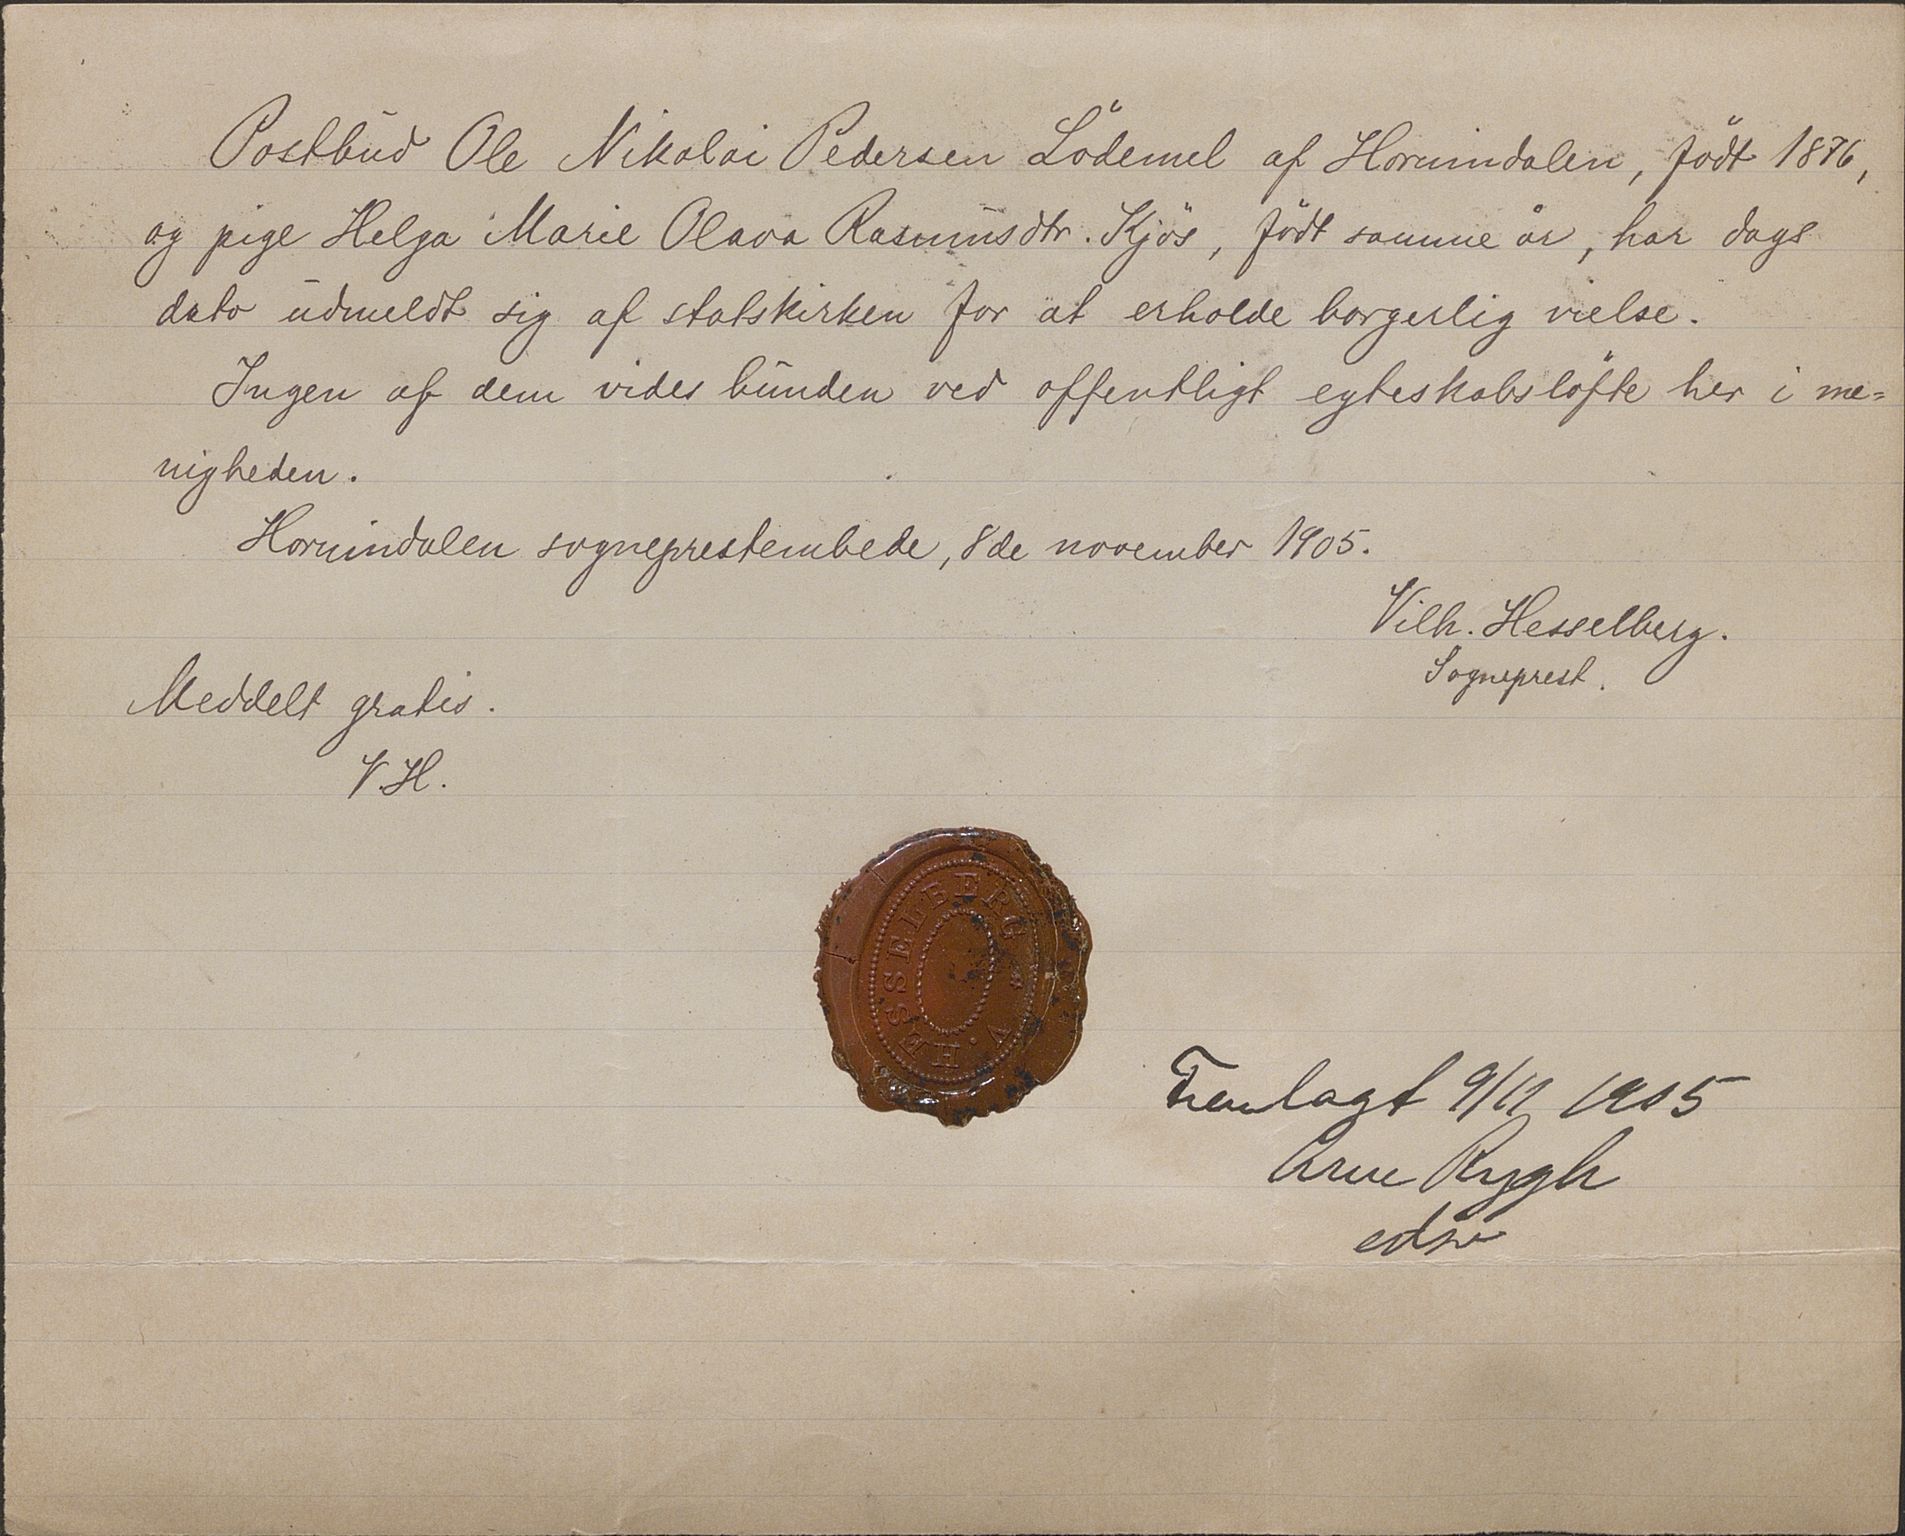 Postbud Ole Nikolai Pedersen Lödemel af Hornindalen, födt 1876,
og pige Helga Marie Olava Rasmusdtr. Kjös, födt samme år, har dags
dato udmeldt sig af statskirken for at erholde borgerlig vielse.
Ingen af dem vides bunden ved offentligt egteskabslöfte her i me=
nigheden.
Hornindalen sogneprestembede, 8de november 1905.
Vilh. Hesselberg.
Sogneprest.
Meddelt gratis.
V.H.
V. HESSELBERG
Fremlagt 9/11 1905
Arne Rygh
edsv